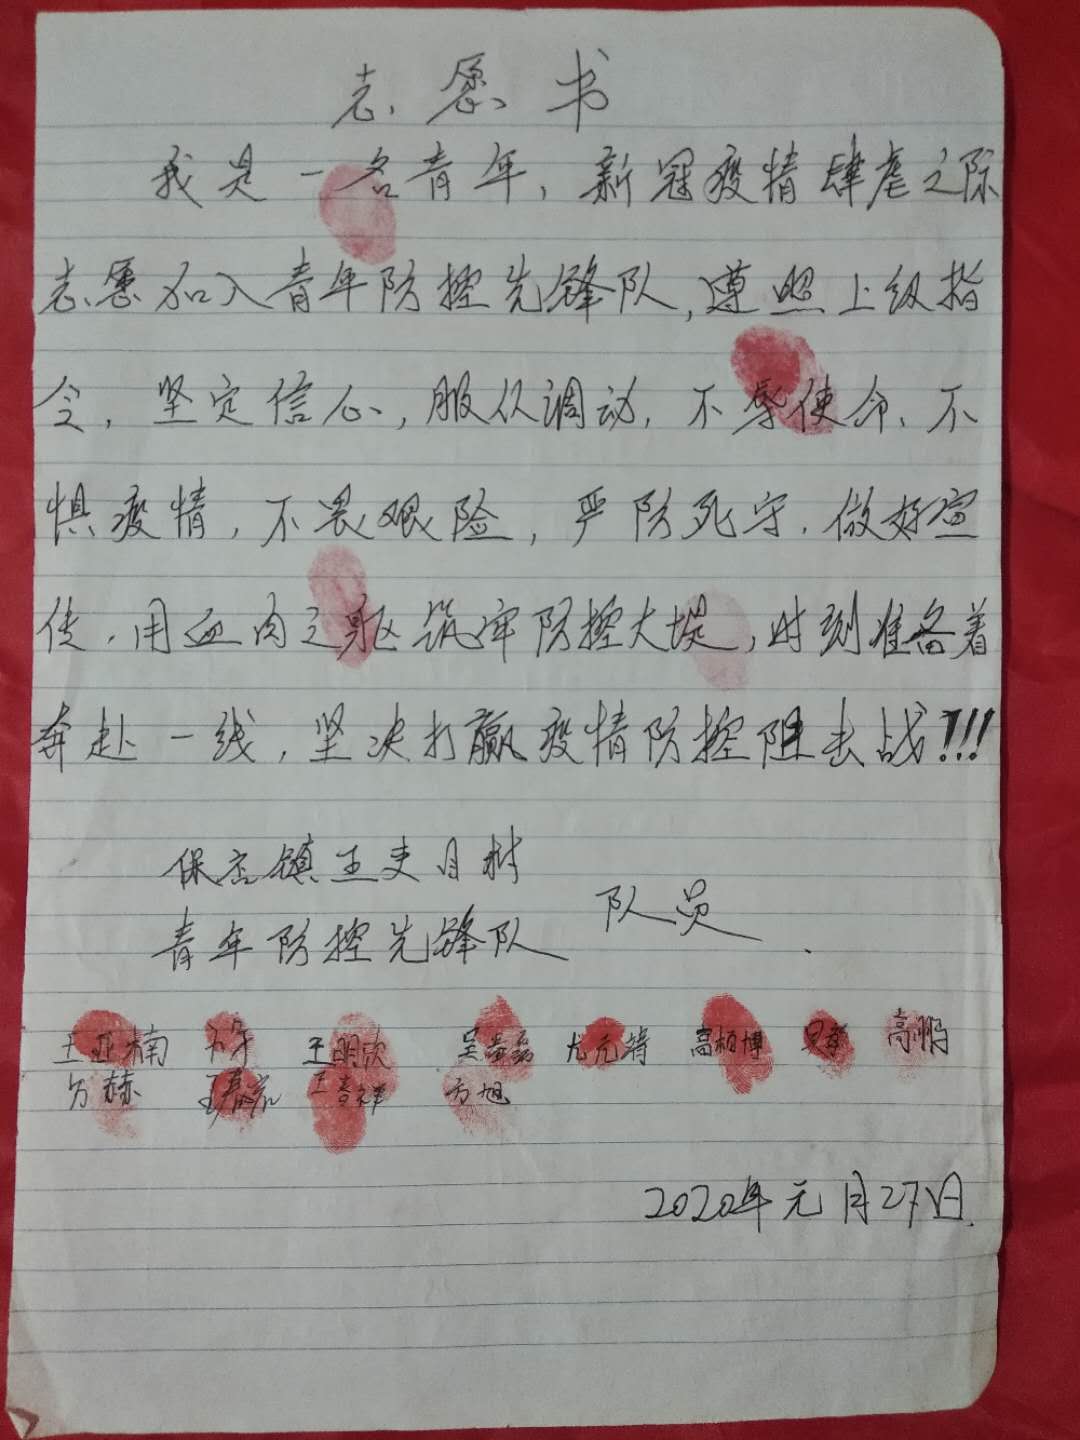 志愿书
我是一名青年，新冠疫情肆虐之际
志愿加入青年防控先锋队，遵照上级指
令，坚定信心，服从调动，不辱使命、不
惧疫情，不畏艰险，严防死守，做好宣
传，用血肉之躯筑牢防控大堤，时刻准备着
奔赴一线，坚决打赢疫情防控阻击战！！！
保店镇王吏目村
青年防控先锋队 队员
王亚楠 王明欣 尤元特 高柏博 高鹏
方赫 方旭
2020年元月27日